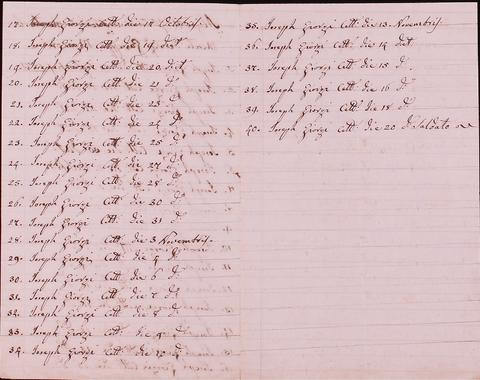 17. Joseph Giorgi Citt. die 17 Octobris.
18. Joseph Giorgi Citt. die 19 det
19. Joseph Giorgi Citt. die 20 det
20. Joseph Giorgi Citt. die 21 d.
21. Joseph Giorgi Citt. die 23 d.
22. Joseph Giorgi Citt. die 24 d.
23. Joseph Giorgi Citt. die 25 d.
24. Joseph Giorgi Citt. die 27 d.
25. Joseph Giorgi Citt. die 28 d.
26. Joseph Giorgi Citt. die 30 d.
27. Joseph Giorgi Citt. die 31 d.
28. Joseph Giorgi Citt. die 3 Novembris.
29. Joseph Giorgi Citt. die 4 d.
30. Joseph Giorgi Citt. die 6 d.
31. Joseph Giorgi Citt. die 7 d.
32. Joseph Giorgi Citt. die 8 d.
33. Joseph Giorgi Citt. die 9 d.
34. Joseph Giorgi Citt. die 10 d.
35. Joseph Giorgi Citt. die 13. Novembris.
36. Joseph Giorgi Citt. die 14 det.
37. Joseph Giorgi Citt. die 15 d.
38. Joseph Giorgi Citt. die 16 d.
39. Joseph Giorgi Citt. die 18 d.
40. Joseph Giorgi Citt. die 20 d. Saldato